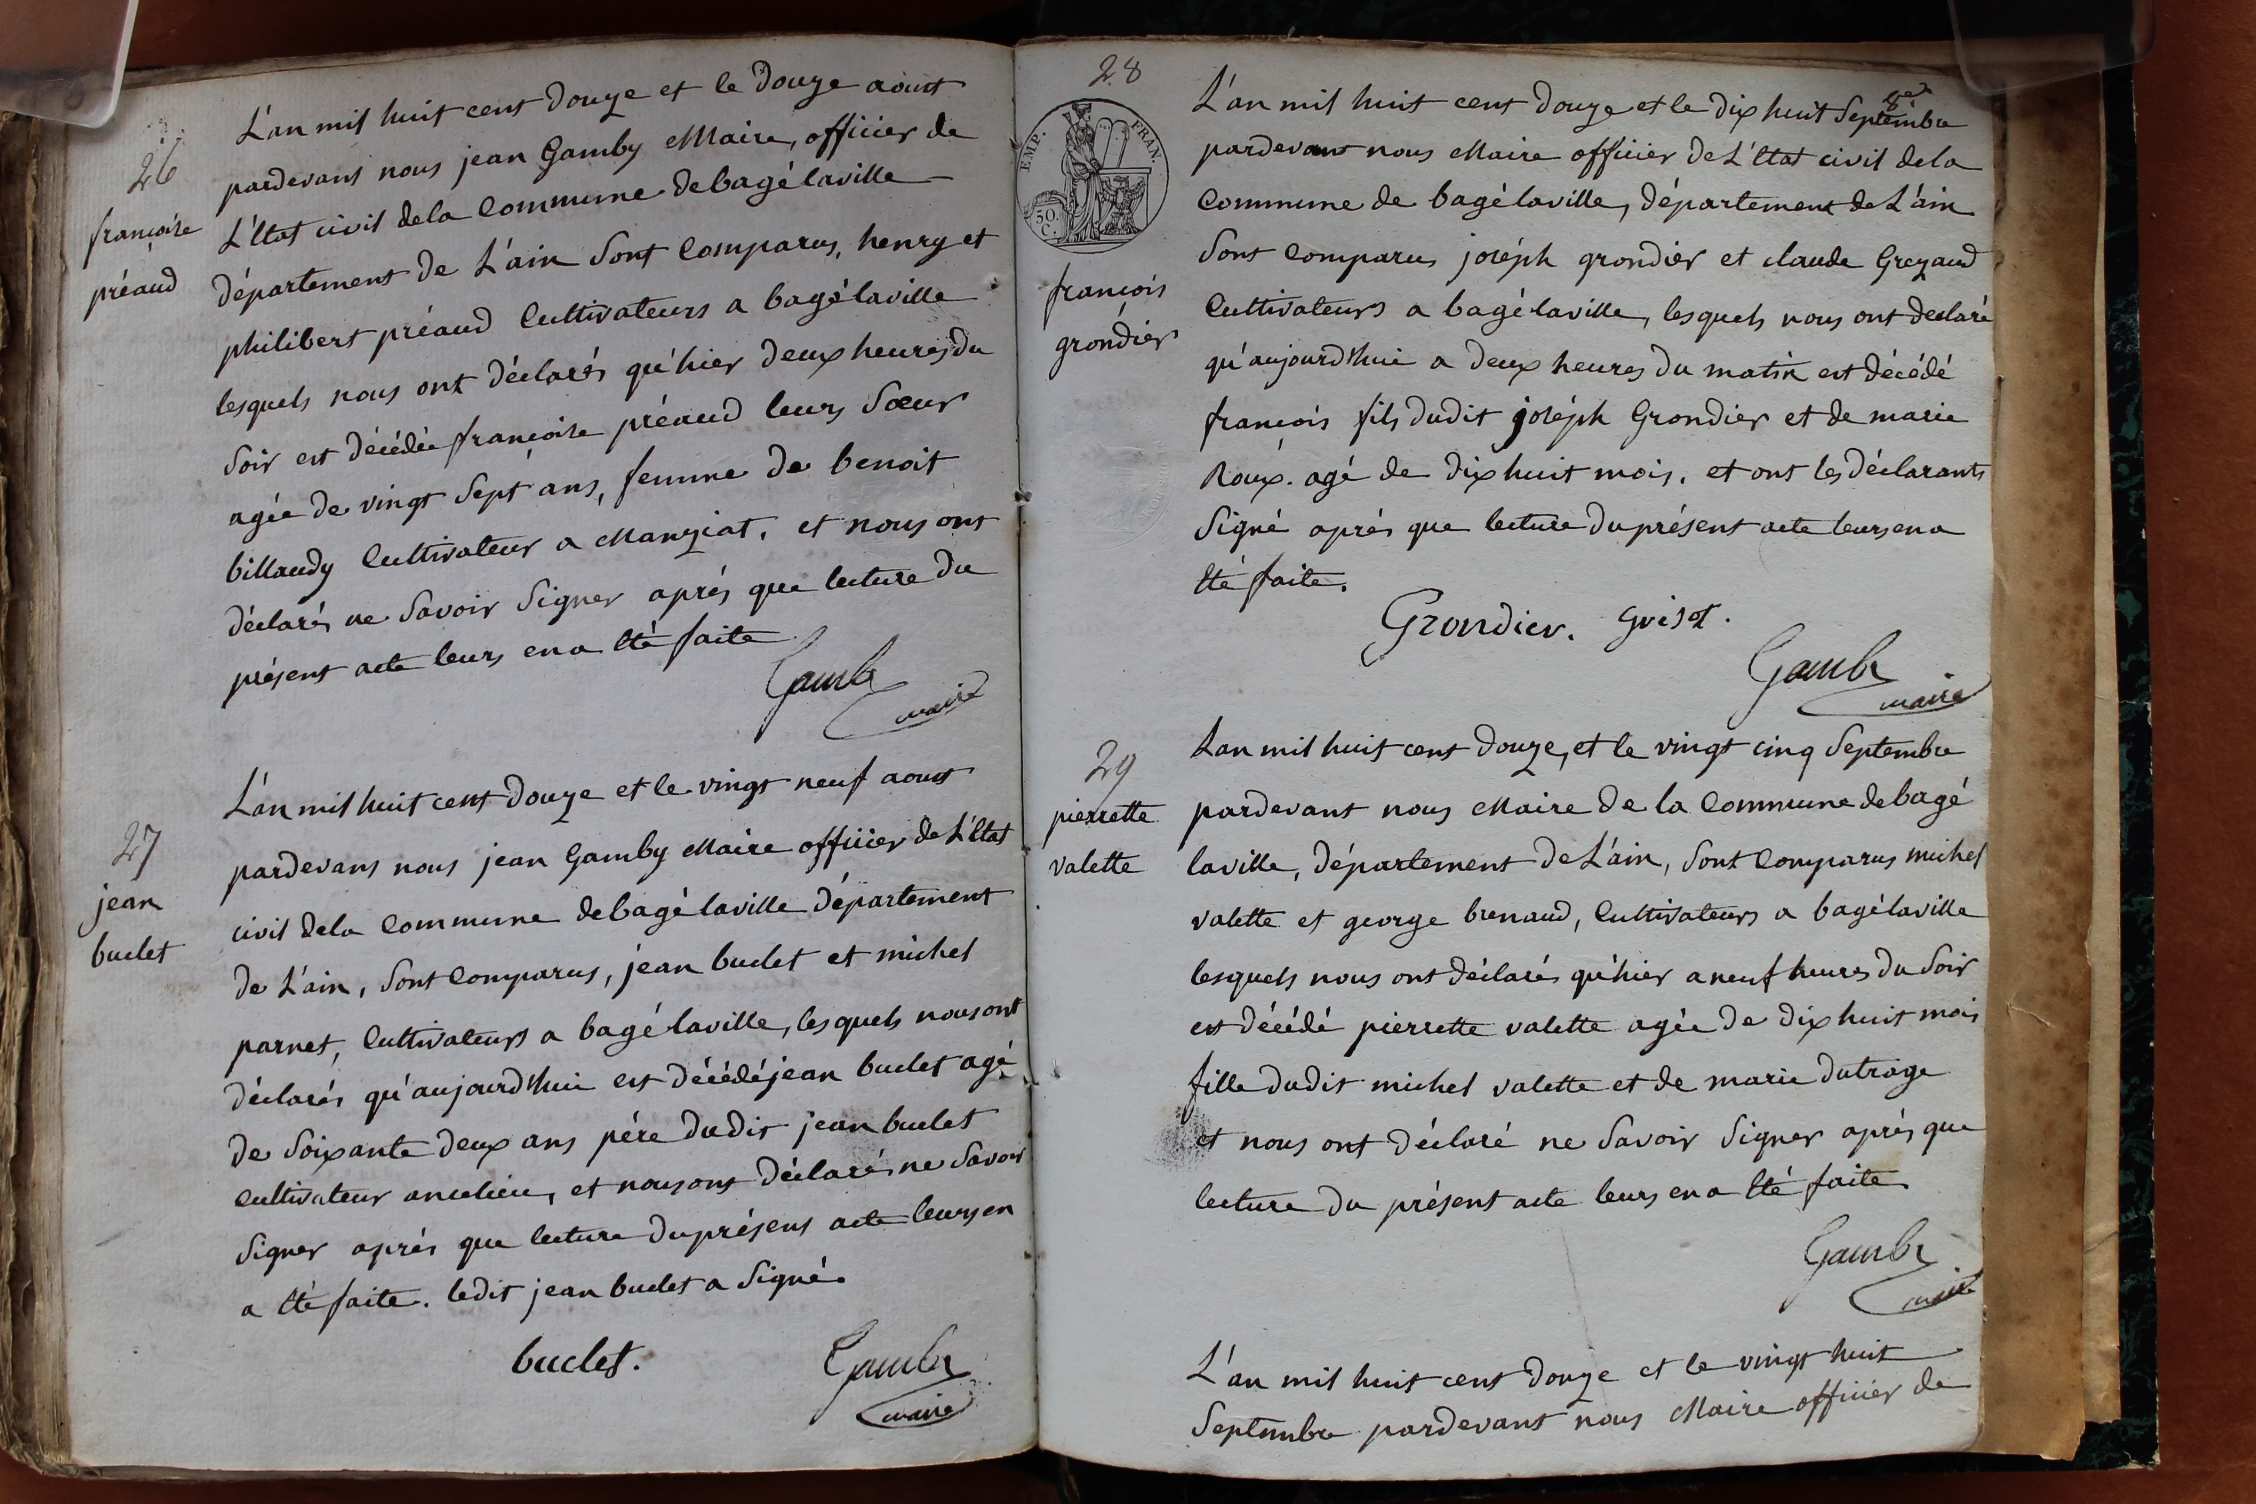 26
françoise
préaud
L'an mil huit cent douze et le douze aoust
pardevant nous jean Gamby Maire, officier de
L'Etat civil dela Commune debagé laville
département de L'ain Sont Comparus, henry et
philibert préaud Cultivateurs a bagé laville
lesquels nous ont déclarés qu'hier deux heures du
Soir est décédée françoise préaud leurs Sœur
agée de vingt Sept ans, femme de benoit
billaudy Cultivateur a Manziat, et nous ont
déclarés ne Savoir Signer aprés que lecture du
présent acte leurs en a Eté faite
Gamby
maire
27
jean
buclet
L'an mil huit cent douze et le vingt neuf aoust
pardevant nous jean Gamby Maire officier de L'Etat
civil dela Commune debagé laville département
de L'ain, Sont Comparus, jean buclet et michel
parnet, Cultivateurs a bagé laville, lesquels nous ont
déclarés qu'aujourd'hui est décédé jean buclet agé
de Soixante deux ans pére dudit jean buclet
Cultivateur audit lieu, et nous ont déclarés ne Savoir
Signer aprés que lecture du présent acte leurs en
a Eté faite. ledit jean buclet a Signé.
buclet.
Gamby
maire
28
EMP. FRAN.
50.
C.
françois
grondier
L'an mil huit cent douze et le dix huit Septembre
pardevant nous Maire officier de L'Etat civil dela
Commune de bagé laville, département de L'ain
Sont Comparus joséph grondier et claude Grezaud
Cultivateurs a bagé laville, lesquels nous ont declaré
qu'aujourd'hui a deux heures du matin est décédé
françois fils dudit joséph Grondier et de marie
Roux. agé de dix huit mois. et ont les déclarants
Signé aprés que lecture du présent acte leurs en a
Eté faite.
Grondier. Grisot.
Gamby
maire
29
pierrette
valette
L'an mil huit cent douze, et le vingt cinq Septembre
pardevant nous Maire de la Commune debagé
laville, département de L'ain, Sont Comparus michel
valette et george brenaud, Cultivateurs a bagé laville
lesquels nous ont déclarés qu'hier a neuf heures du Soir
est décédé pierrette valette agée de dix huit mois
fille dudit michel valette et de marie dutrage
et nous ont déclaré ne Savoir Signer aprés que
lecture du présent acte leurs en a Eté faite
Gamby
maire
L'an mil huit cent douze et le vingt huit
Septembre pardevant nous Maire officier de